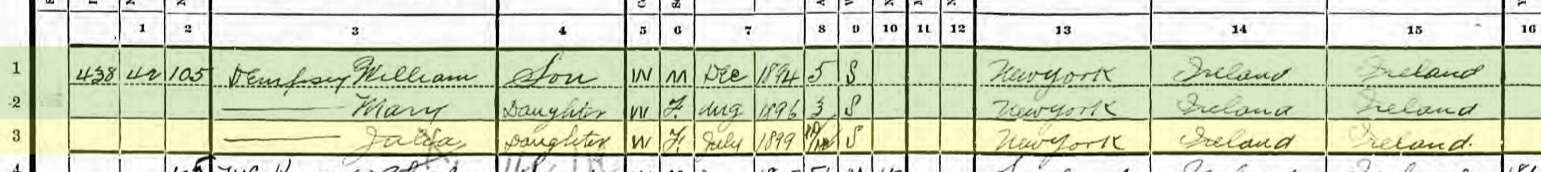 1 2 3 4 5 6 7 8 9 10 11 12 13 14 15 16
1 438 42 105 Dempsey William Son W M Dec 1894 5 S New York Ireland Ireland
2 — Mary Daughter W F. Aug 1896 3 S New York Ireland Ireland
3 — Julia Daughter W F. July 1899 10/12 S New York Ireland Ireland.
4